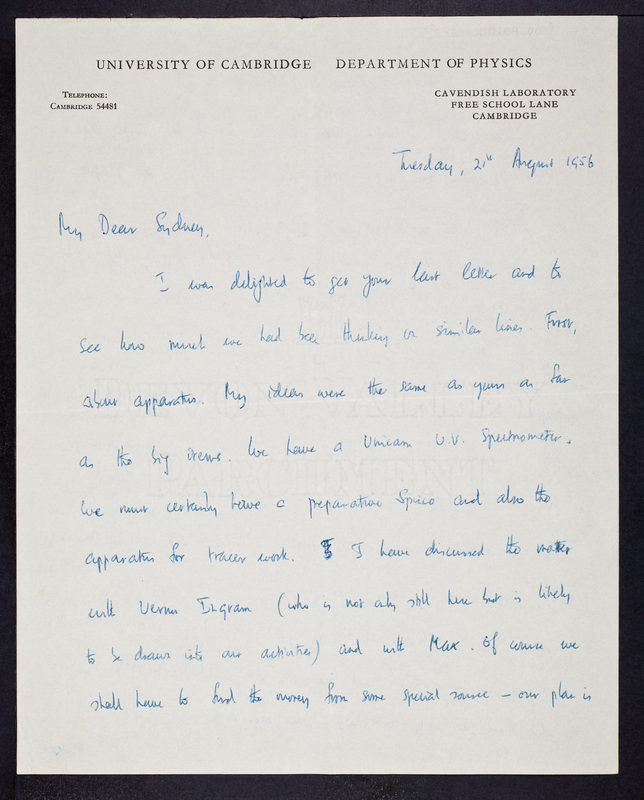 UNIVERSITY OF CAMBRIDGE DEPARTMENT OF PHYSICS
TELEPHONE:
CAMBRIDGE 54481
CAVENDISH LABORATORY
FREE SCHOOL LANE
CAMBRIDGE
Tuesday, 21st August 1956
My Dear Sydney,
I was delighted to get your last letter and to
see how much we had been thinking on similar lines. First,
about apparatus. My ideas were the same as yours as far
as the big items. We have a Unicam U.V. Spectrometer.
We must certainly have a preparative Spinco and also the
apparatus for tracer work. I have discussed the matter
with Vernon Ingram (who is not only still here but is likely
to be drawn into our activities) and with Max. Of course we
shall have to find the money from some special source – our plan is